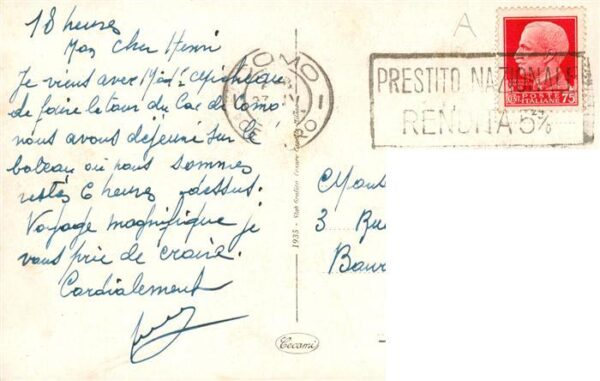 18 heures
Mon cher Henri
Je viens avec
de faire le tour du Lac de Como
nous avons déjeuné sur le
bateau où nous sommes
restés 6 heures dessus.
Voyage magnifique je
vous prie de croire.
Cordialement
COMO
PRESTITO NAZIONALE
RENDITA 5%
POSTE
ITALIANE
75
A
3 Rue
1935
Cecami